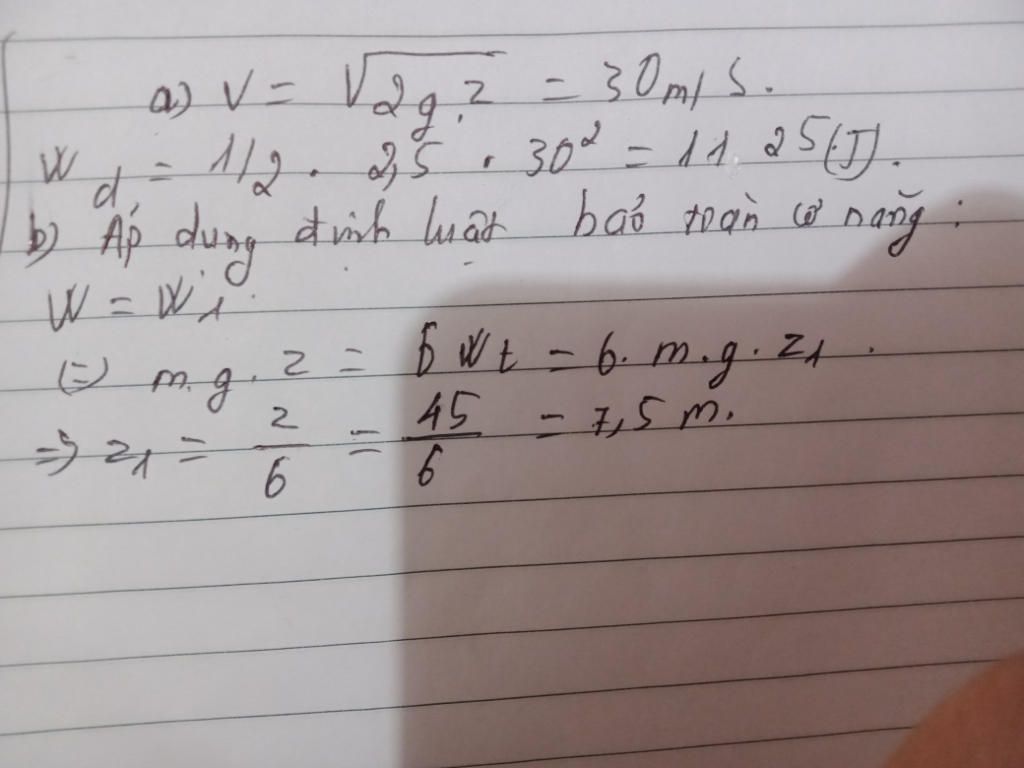 a) V = √2g.z = 30m/s.
Wđ = 1/2 . 2,5 . 30² = 1125(J).
b) Áp dụng định luật bảo toàn cơ năng:
W = W₁
(=) m.g.z = 6Wt = 6.m.g.z₁.
=> z₁ = z/6 = 45/6 = 7,5 m.